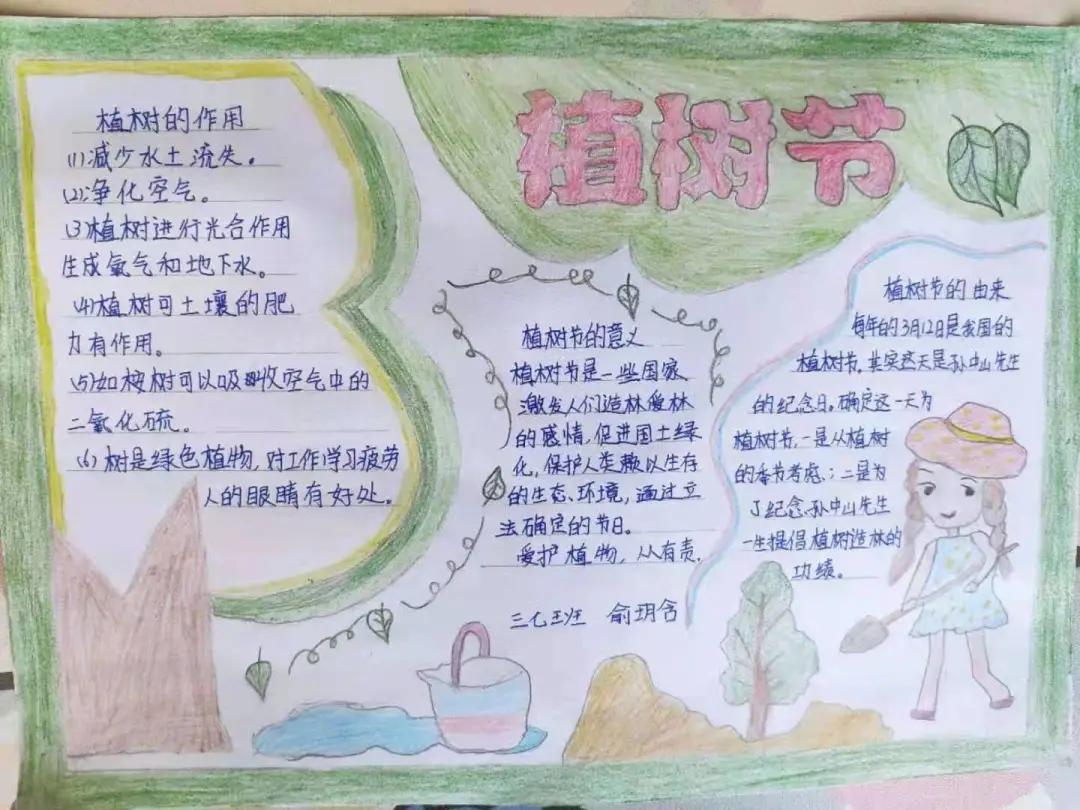 植树节
植树的作用
(1)减少水土流失。
(2)净化空气。
(3)植树进行光合作用
生成氧气和地下水。
(4)植树可土壤的肥
力有作用。
(5)如桉树可以吸收空气中的
二氧化硫。
(6)树是绿色植物,对工作学习疲劳
人的眼睛有好处。
植树节的意义
植树节是一些国家
激发人们造林爱林
的感情,促进国土绿
化,保护人类赖以生存
的生态、环境,通过立
法确定的节日。
爱护植物,从有责。
三(七)班 俞玥含
植树节的由来
每年的3月12日是我国的
植树节,其实这天是孙中山先生
的纪念日。确定这一天为
植树节,一是从植树
的季节考虑,;二是为
了纪念孙中山先生
一生提倡植树造林的
功绩。